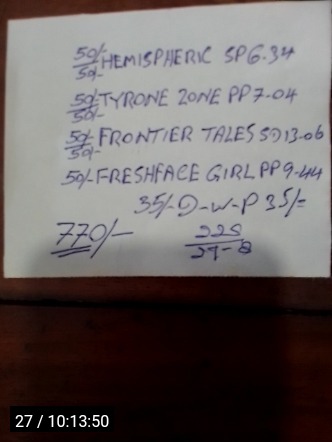 50/-
50/- HEMISPHERIC SP 6.34
50/-
50/- TYRONE ZONE PP 7-04
50/-
50/- FRONTIER TALES SD 13.06
50/- FRESHFACE GIRL PP 9-44
35/- D-W-P 35/=
770/-
225
27 / 10:13:50